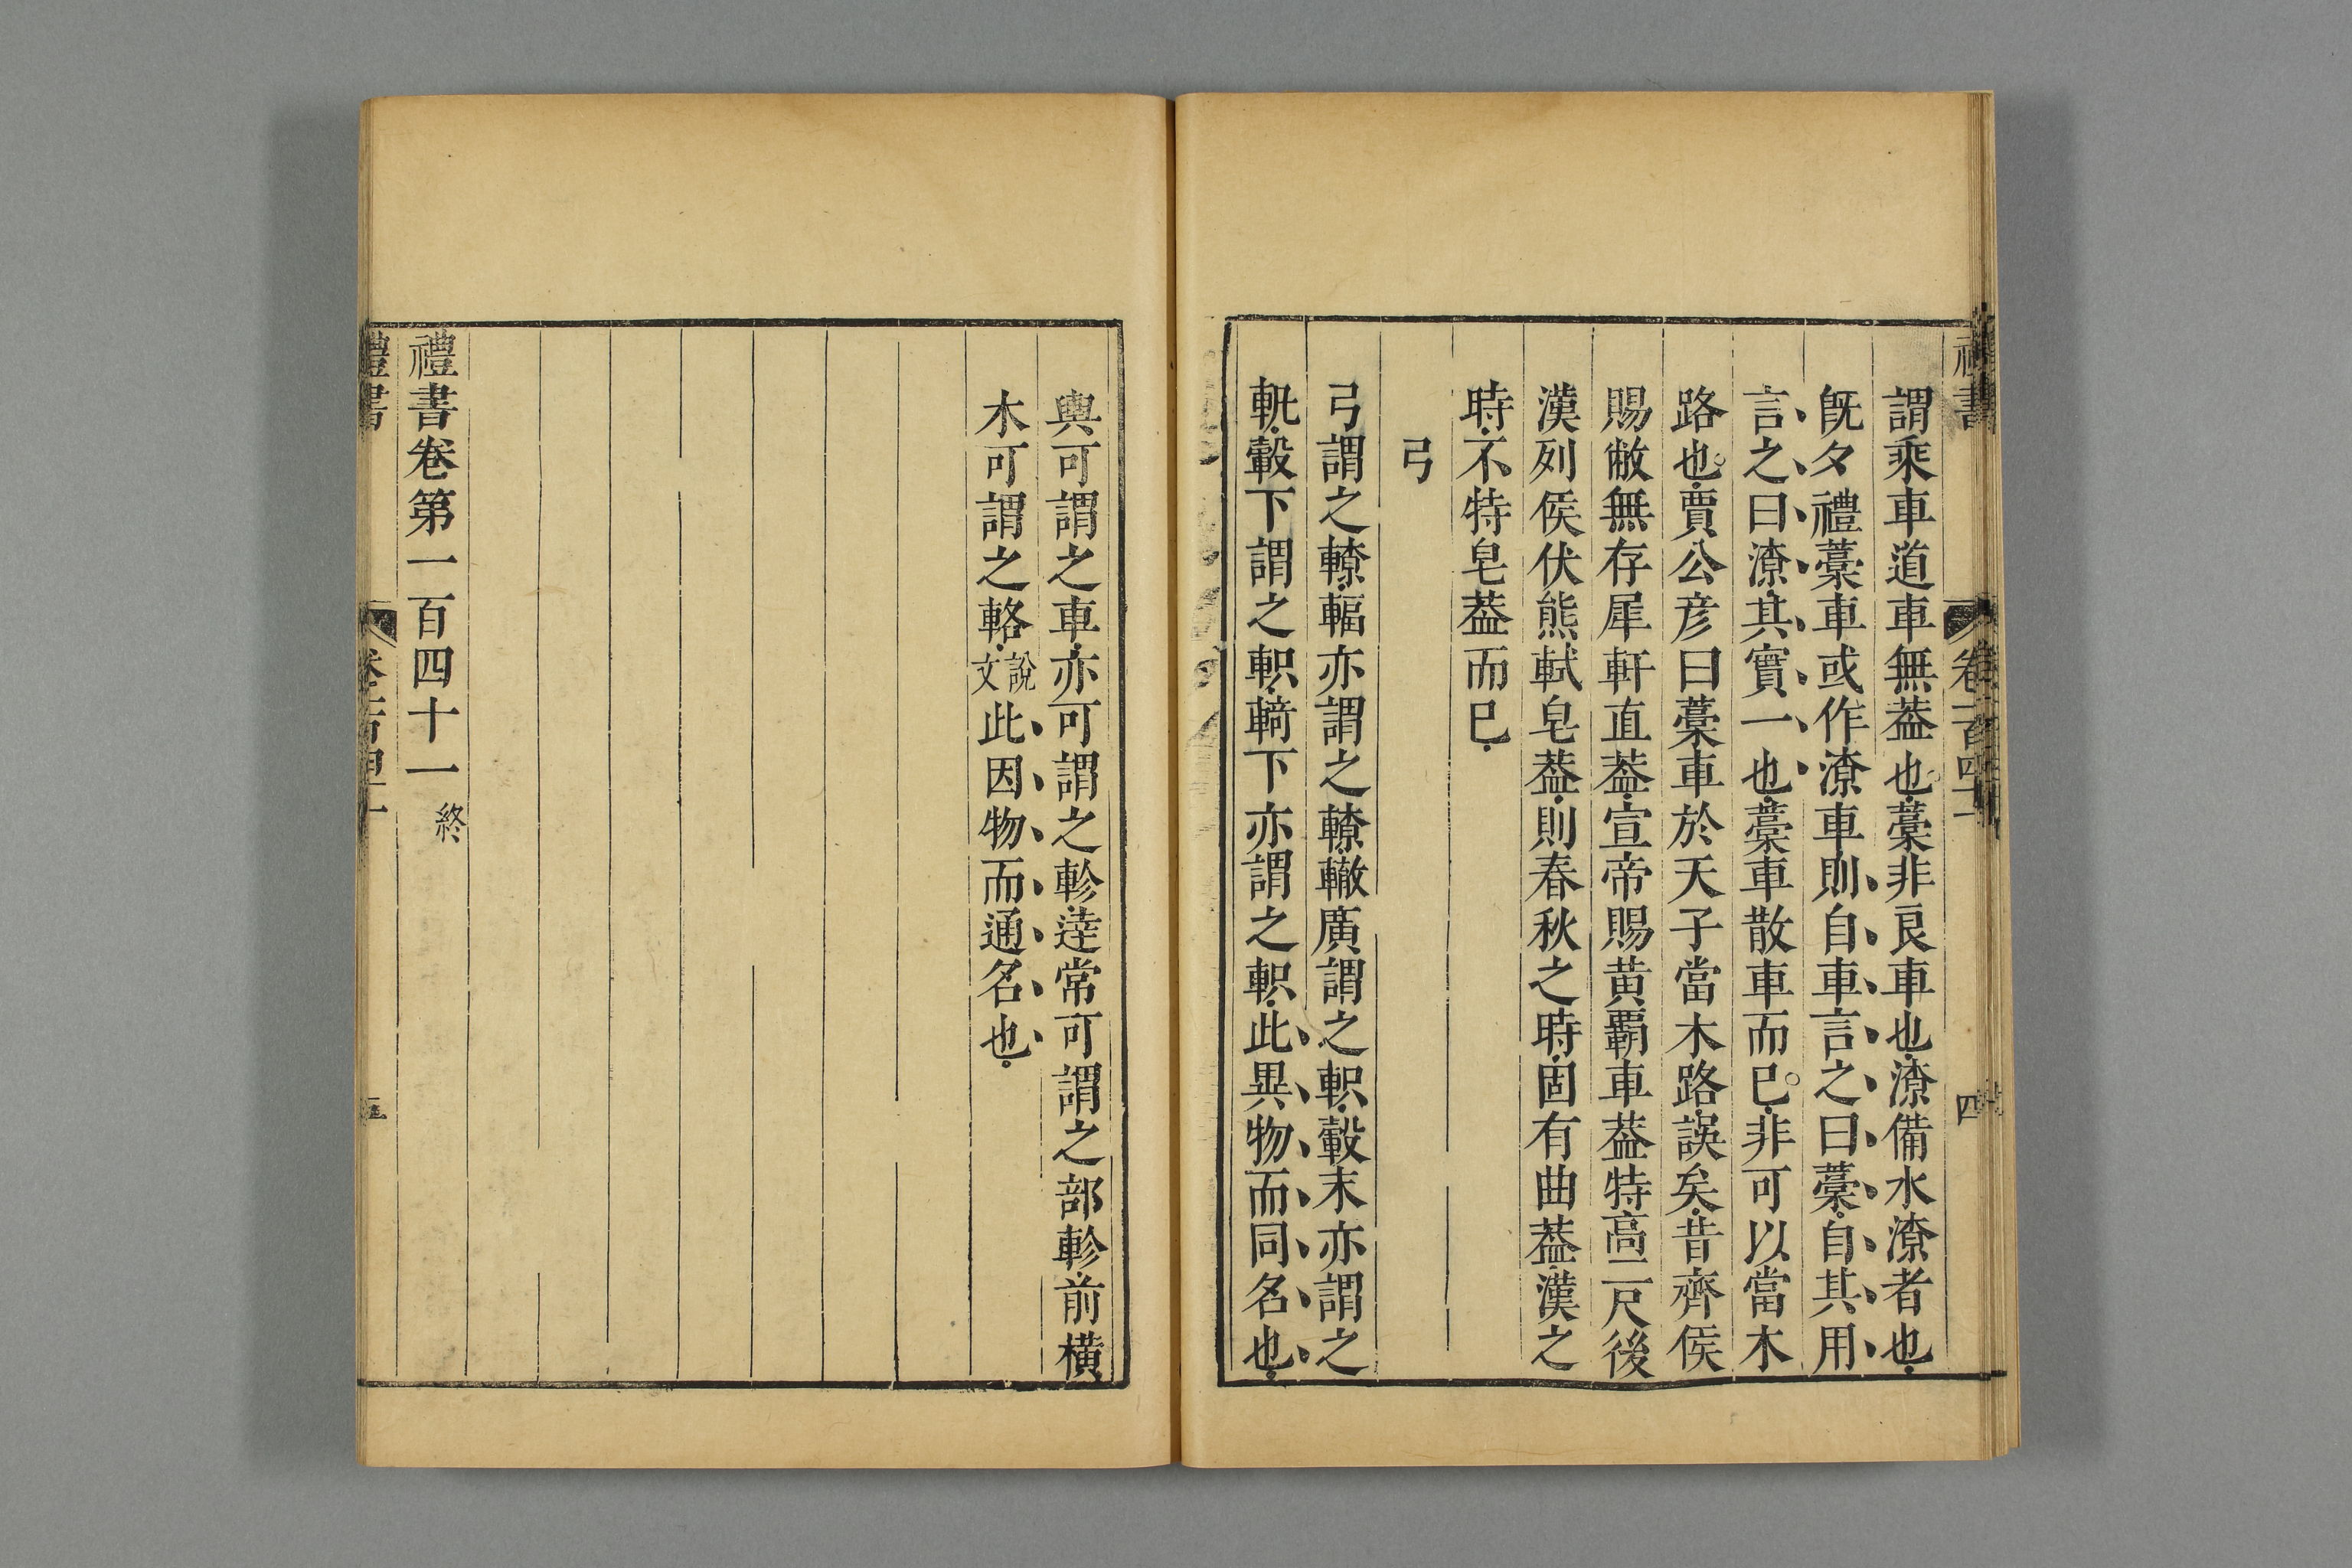 謂乘車道車無葢也。藁非良車也潦備水潦者也
旣夕禮藁車或作潦車則自車言之曰藁自其用
言之曰潦其實一也藁車散車而已。非可以當木
路也。賈公彦曰藁車於天子當木路誤矣昔齊侯
賜敝無存犀軒直葢宣帝賜黄霸車葢特高二尺後
漢列侯伏熊軾皂葢則春秋之時固有曲葢漢之
時不特皂葢而已
弓
弓謂之轑輻亦謂之轑轍廣謂之軹轂末亦謂之
軹轂下謂之軹輢下亦謂之軹此異物而同名也
輿可謂之車亦可謂之軫達常可謂之部軫前橫
木可謂之輅說文此因物而通名也
禮書卷第一百四十一終
禮書